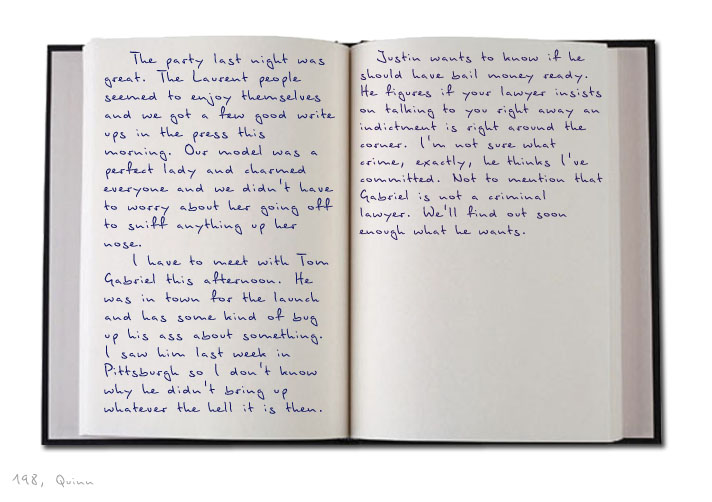 The party last night was
great. The Laurent people
seemed to enjoy themselves
and we got a few good write
ups in the press this
morning. Our model was a
perfect lady and charmed
everyone and we didn't have
to worry about her going off
to sniff anything up her
nose.
I have to meet with Tom
Gabriel this afternoon. He
was in town for the launch
and has some kind of bug
up his ass about something.
I saw him last week in
Pittsburgh so I don't know
why he didn't bring up
whatever the hell it is then.
Justin wants to know if he
should have bail money ready.
He figures if your lawyer insists
on talking to you right away an
indictment is right around the
corner. I'm not sure what
crime, exactly, he thinks I've
committed. Not to mention that
Gabriel is not a criminal
lawyer. We'll find out soon
enough what he wants.
198, Quinn